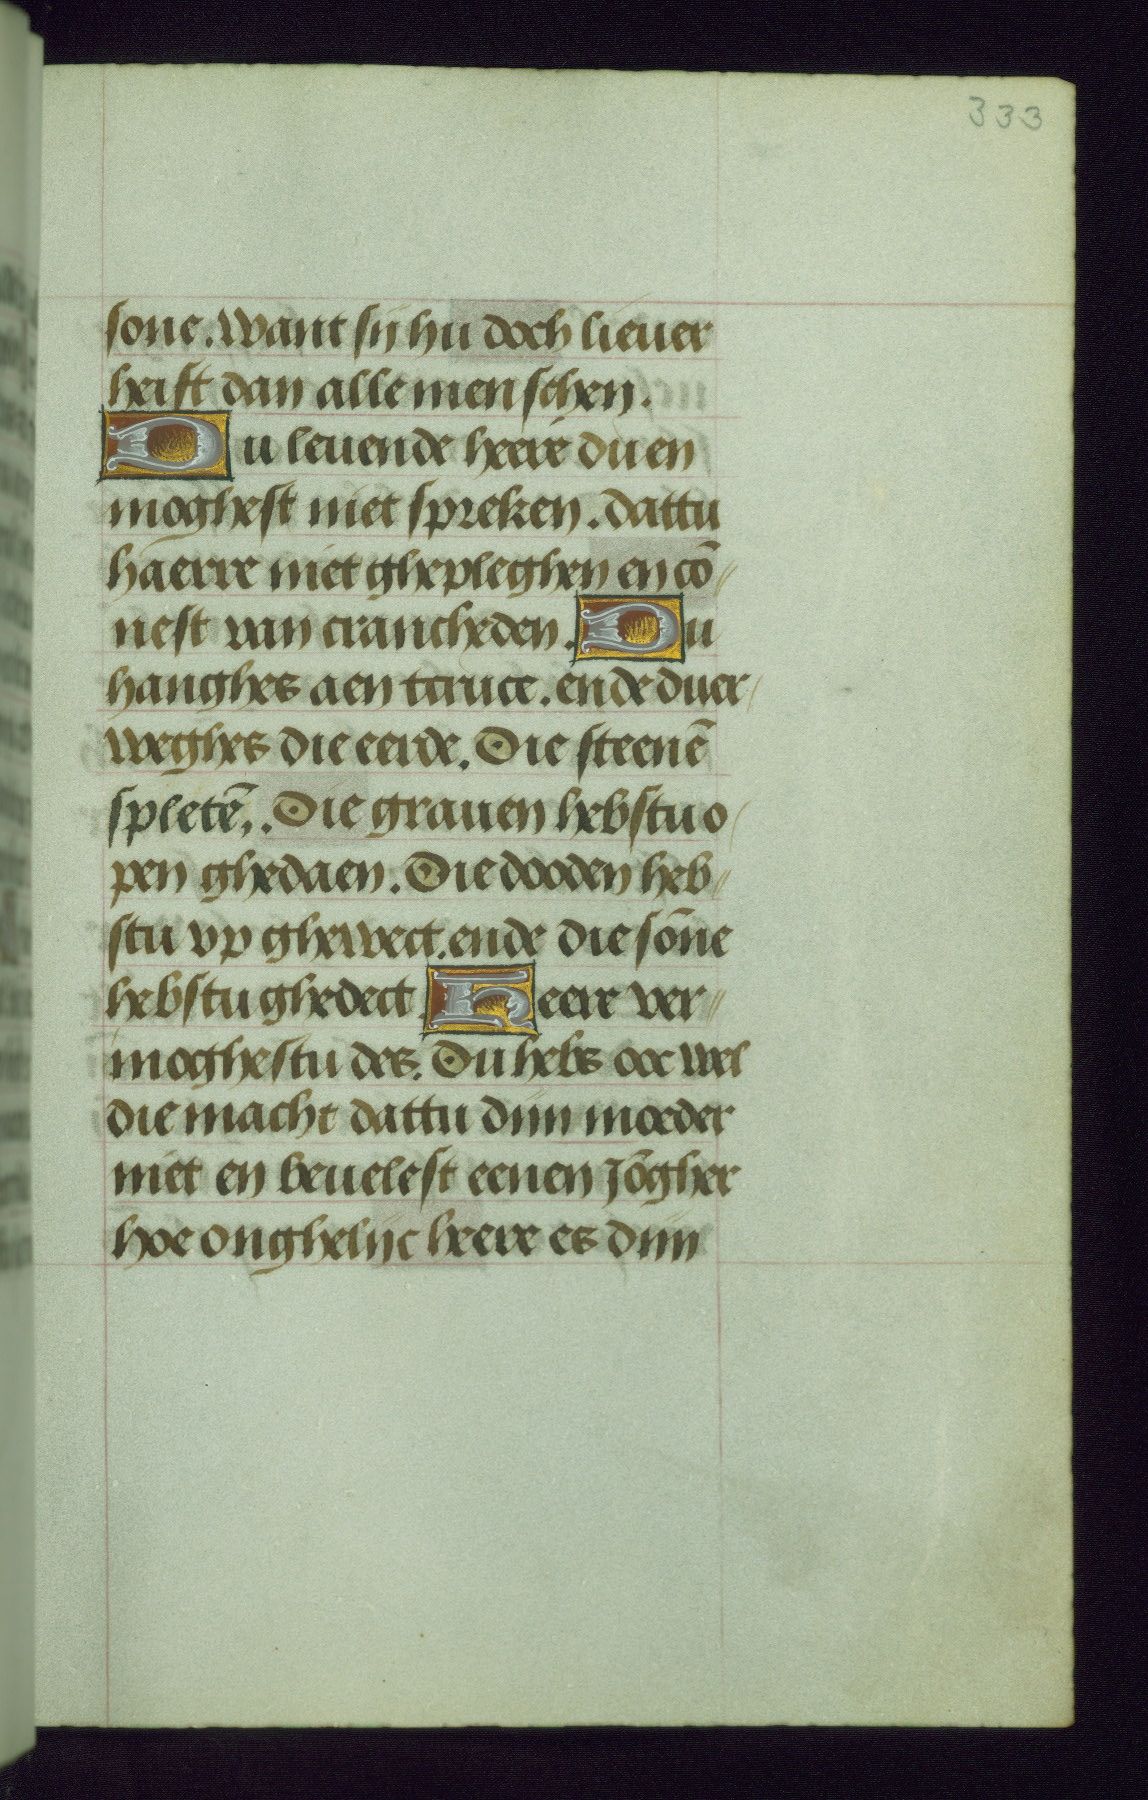 333
sone. Want sij hu doch lieuer
heift dan alle menschen.
Du leuende heere du en
moghest niet spreken. dattu
haerre niet ghepleghen en cō⸗
nest van crancheden. Du
hanghes aen tcruce. ende duer⸗
weghes die eerde. Die steenē
spletē,. Die grauen hebstu o⸗
pen ghedaen. Die dooden heb⸗
stu vp ghewect. ende die sōne
hebstu ghedect. Heere ver⸗
moghestu des. Du hebs ooc wel
die macht dattu dijn moeder
niet en beuelest eenen Jōgher
hoe onghelijc heere es dijn